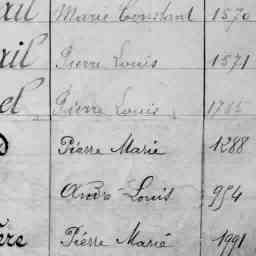 ail Marie Constant 1570
ail Pierre Louis 1571
el, Pierre Louis, 1785
Pierre Marie 1288
André Louis 954
ère Pierre Marié 1991